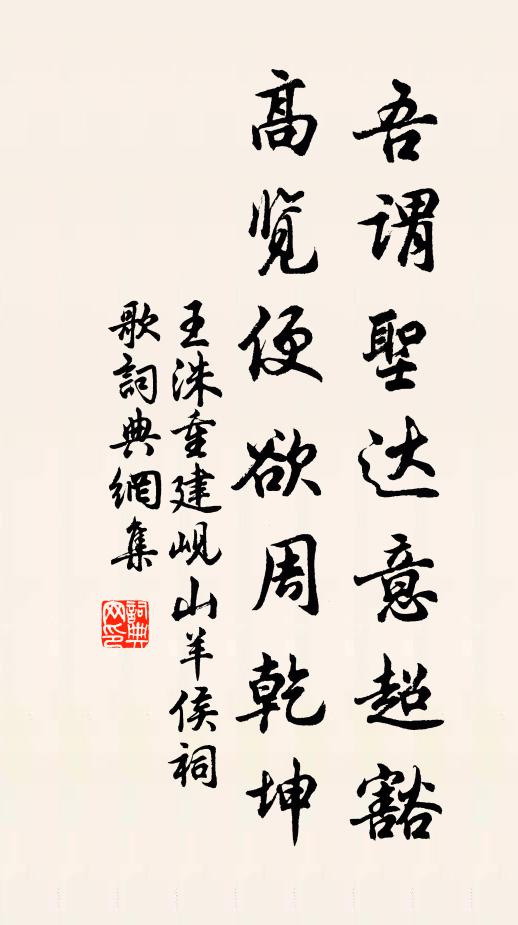 吾谓聖达意超豁
高览便欲周乾坤
王洙重建岘山羊侯祠
歌詞典網集
詞典
网印